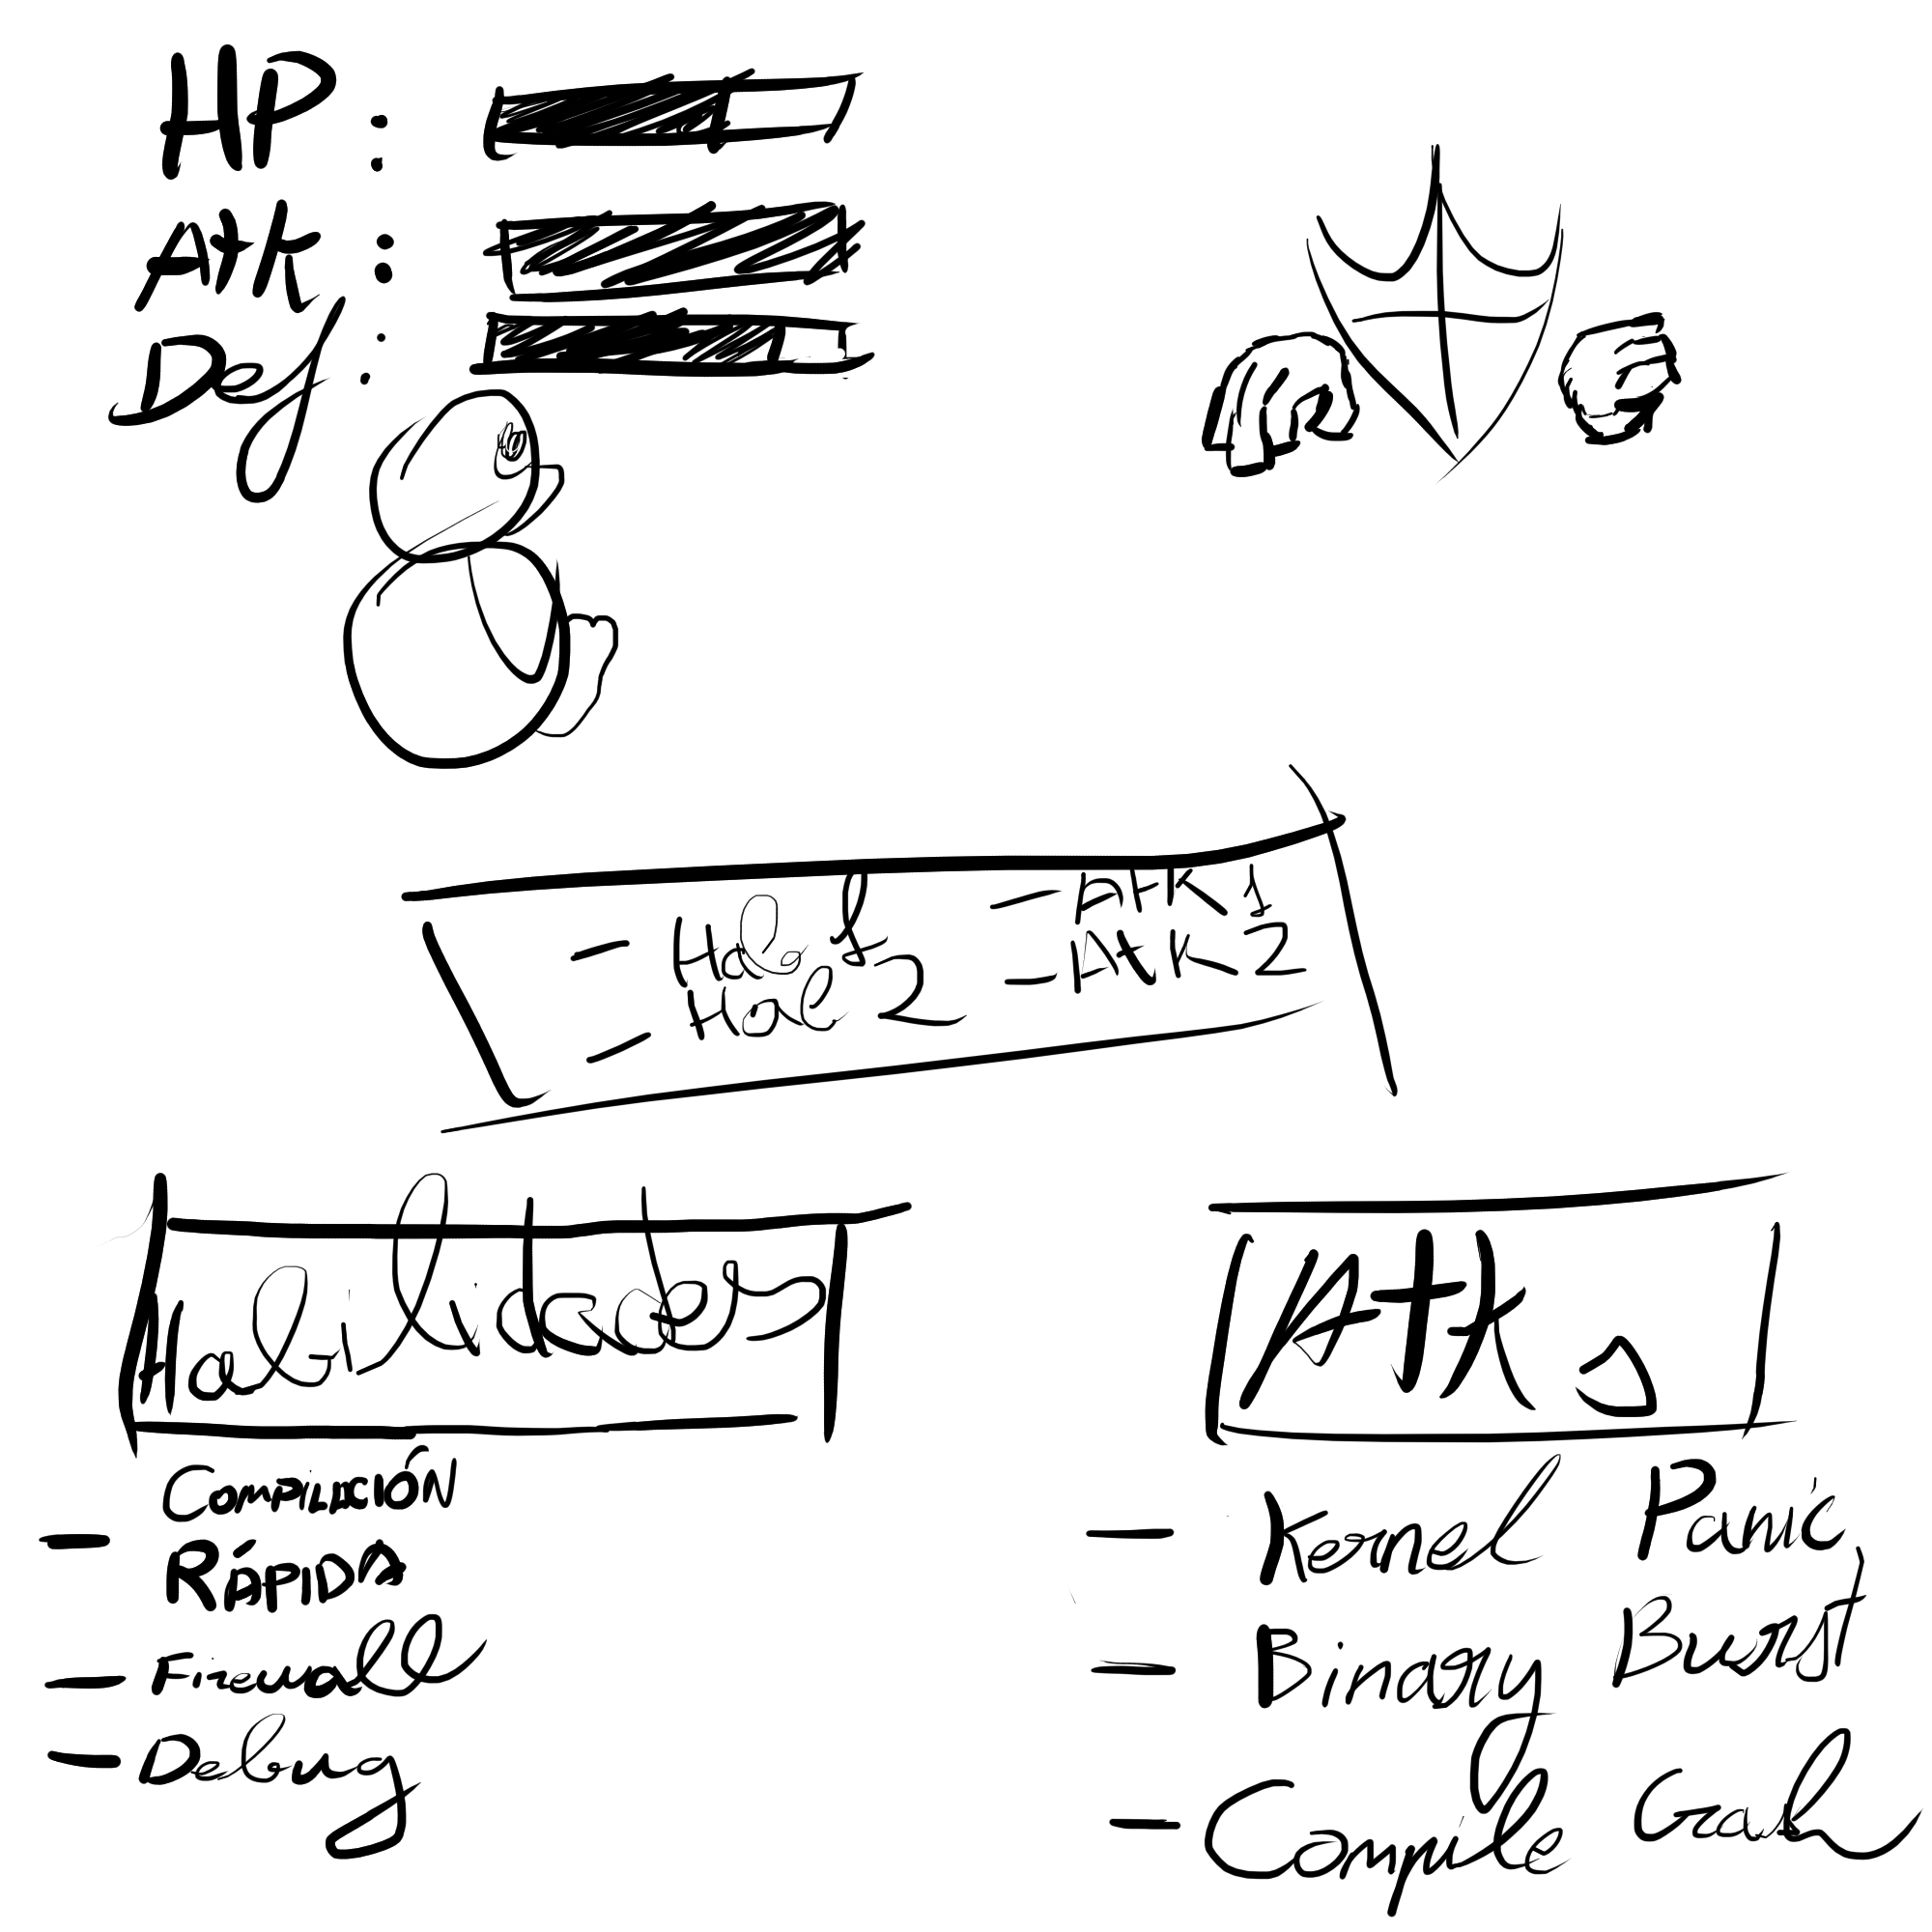 HP :
Atk :
Def :
- Hab 1
- Hab 2
- Atk 1
- Atk 2
Habilidades
- COMPILACIÓN
RÁPIDA
- Firewall
- Debug
Atk s
- Kernel Panic
- Binary Burst
- Compile Gak